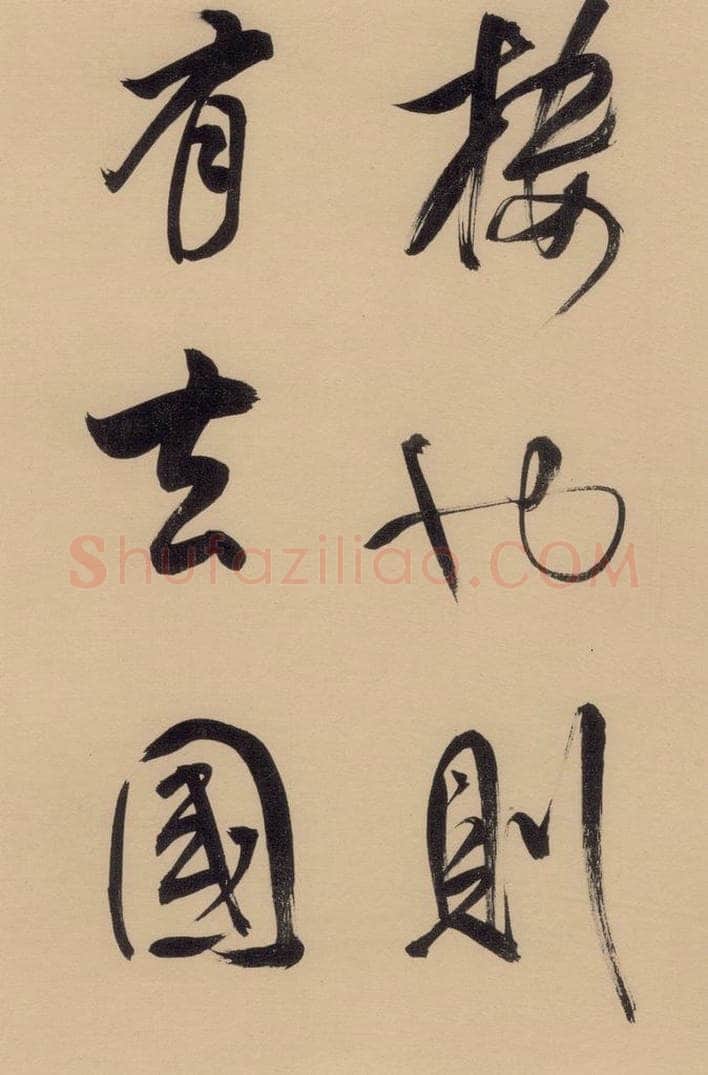 樓也則
有去國
Shufaziliao.COM